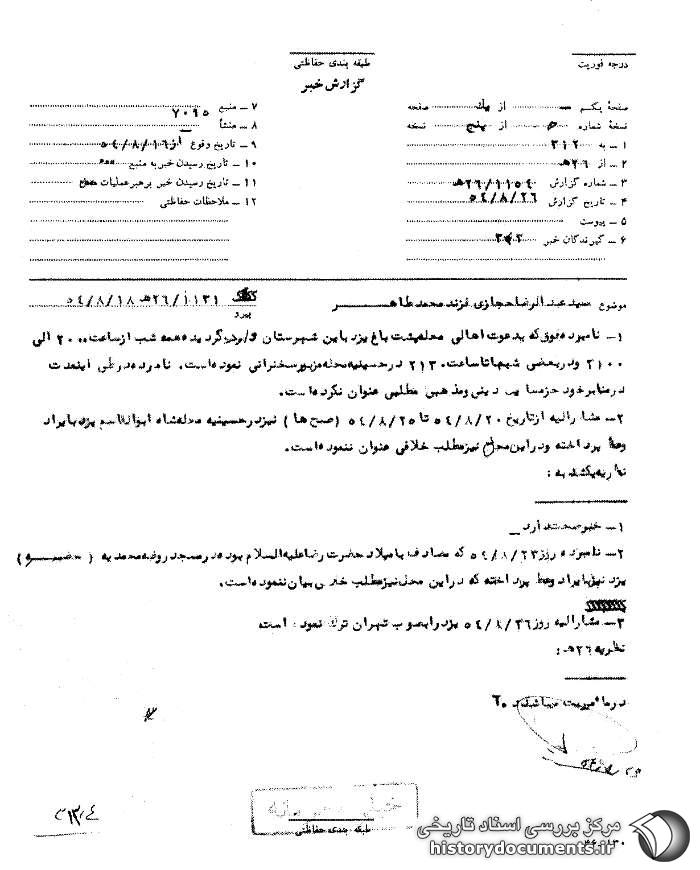 درجه فوریت
طبقه بندی حفاظتی
گزارش خبر
صفحهٔ یکم از یک صفحه
نسخهٔ شماره ۵ از پنج نسخه
۱ – به ۳۱۲
۲ – از ۲۶ هـ
۳ – شماره گزارش ۲۶/۱۱۵۴ هـ
۴ – تاریخ گزارش ۵۴/۸/۲۶
۵ – پیوست
۶ – گیرندگان خبر ۳۱۲
۷ – منبع ۷۰۹۵
۸ – منشأ
۹ – تاریخ وقوع از ۵۴/۸/۱۶
۱۰ – تاریخ رسیدن خبر به منبع
۱۱ – تاریخ رسیدن خبر برهبر عملیات
۱۲ – ملاحظات حفاظتی
موضوع سید عبدالرضا حجازی فرزند محمد طاهر
پیرو ۲۶/۱۱۳۱ هـ ۵۴/۸/۱۸
۱– نامبرده فوق که بدعوت اهالی محله پشت باغ یزد باین شهرستان وارد گردیده همه شب از ساعت ۲۰۰۰ الی
۲۱۰۰ و در بعضی شبها تا ساعت ۲۱۳۰ در حسینیه محله مزبور سخنرانی نموده است. نامبرده در طی اینمدت
در منابر خود جز مسایل دینی و مذهبی مطلبی عنوان نکرده است.
۲– مشارالیه از تاریخ ۵۴/۸/۲۰ تا ۵۴/۸/۲۵ (صبح ها) نیز در حسینیه محله شاه ابوالقاسم یزد بایراد
وعظ پرداخته و در این محل نیز مطلب خلافی عنوان ننموده است.
نظریه یکشنبه :
۱– خبر صحت دارد
۲– نامبرده روز ۵۴/۸/۲۳ که مصادف با میلاد حضرت رضا علیه السلام بوده در مسجد روضه محمدیه (حضیره)
یزد نیز بایراد وعظ پرداخته که در این محل نیز مطلب خلافی بیان ننموده است.
۳– مشارالیه روز ۵۴/۸/۲۶ یزد را بصوب تهران ترک نموده است
نظریه ۲۶ هـ :
در مأموریت میباشند
خیلی محرمانه
طبقه بندی حفاظتی
مرکز بررسی اسناد تاریخی
historydocuments.ir